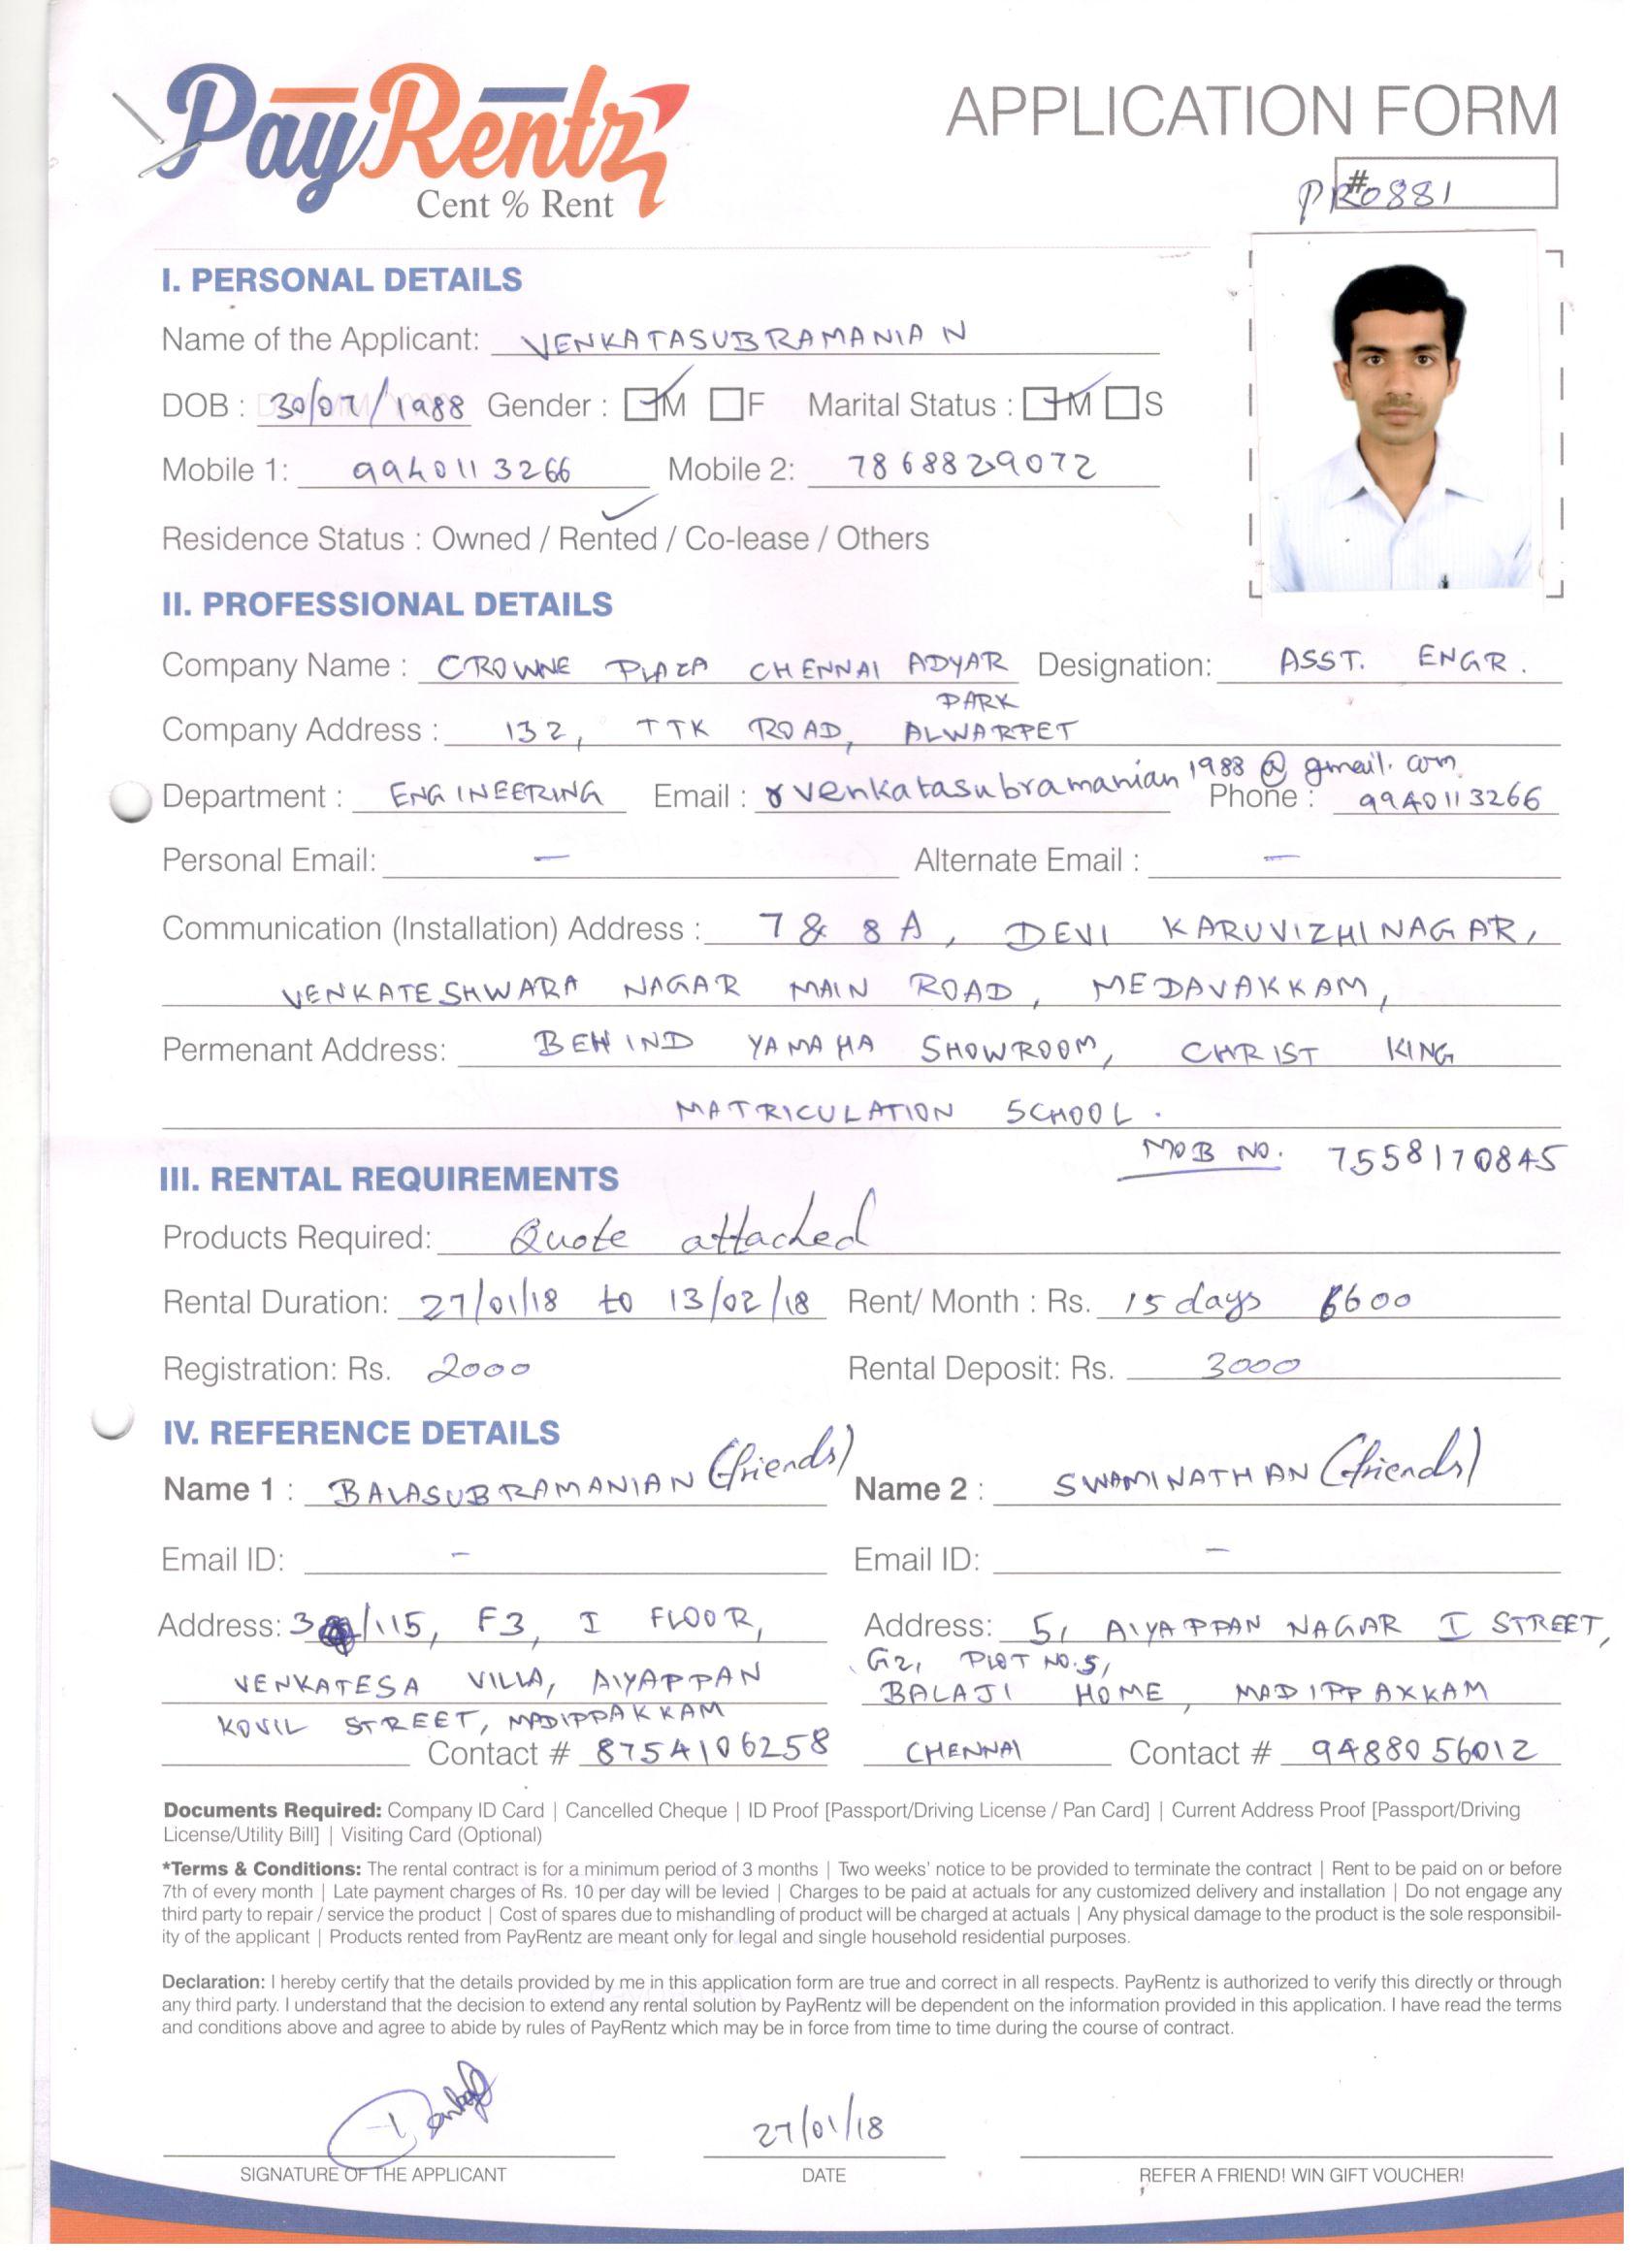 PayRentz
Cent % Rent
APPLICATION FORM
#
PR0881
I. PERSONAL DETAILS
Name of the Applicant: VENKATASUBRAMANIAN
DOB : 30/07/1988 Gender : M F Marital Status : M S
Mobile 1: 9940113266 Mobile 2: 7868829072
Residence Status : Owned / Rented / Co-lease / Others
II. PROFESSIONAL DETAILS
Company Name : CROWNE PLAZA CHENNAI ADYAR Designation: ASST. ENGR.
PARK
Company Address : 132, TTK ROAD, ALWARPET
Department : ENGINEERING Email : venkatasubramanian1988@gmail.com Phone : 9940113266
Personal Email: – Alternate Email : –
Communication (Installation) Address : 7 & 8A, DEVI KARUVIZHI NAGAR,
VENKATESHWARA NAGAR MAIN ROAD, MEDAVAKKAM,
Permenant Address: BEHIND YAMAHA SHOWROOM, CHRIST KING
MATRICULATION SCHOOL.
MOB NO. 7558170845
III. RENTAL REQUIREMENTS
Products Required: Quote attached
Rental Duration: 27/01/18 to 13/02/18 Rent/ Month : Rs. 15 days 6600
Registration: Rs. 2000 Rental Deposit: Rs. 3000
IV. REFERENCE DETAILS
Name 1 : BALASUBRAMANIAN (friends) Name 2 : SWAMINATHAN (friends)
Email ID: – Email ID: –
Address: 3 /115, F3, I FLOOR, Address: 5, AIYAPPAN NAGAR I STREET,
G2, PLOT NO.5,
VENKATESA VILLA, AIYAPPAN BALAJI HOME, MADIPPAKKAM
KOVIL STREET, MADIPPAKKAM
Contact # 8754106258 CHENNAI Contact # 9488056012
Documents Required: Company ID Card | Cancelled Cheque | ID Proof [Passport/Driving License / Pan Card] | Current Address Proof [Passport/Driving
License/Utility Bill] | Visiting Card (Optional)
*Terms & Conditions: The rental contract is for a minimum period of 3 months | Two weeks' notice to be provided to terminate the contract | Rent to be paid on or before
7th of every month | Late payment charges of Rs. 10 per day will be levied | Charges to be paid at actuals for any customized delivery and installation | Do not engage any
third party to repair / service the product | Cost of spares due to mishandling of product will be charged at actuals | Any physical damage to the product is the sole responsibil-
ity of the applicant | Products rented from PayRentz are meant only for legal and single household residential purposes.
Declaration: I hereby certify that the details provided by me in this application form are true and correct in all respects. PayRentz is authorized to verify this directly or through
any third party. I understand that the decision to extend any rental solution by PayRentz will be dependent on the information provided in this application. I have read the terms
and conditions above and agree to abide by rules of PayRentz which may be in force from time to time during the course of contract.
27/01/18
SIGNATURE OF THE APPLICANT DATE REFER A FRIEND! WIN GIFT VOUCHER!